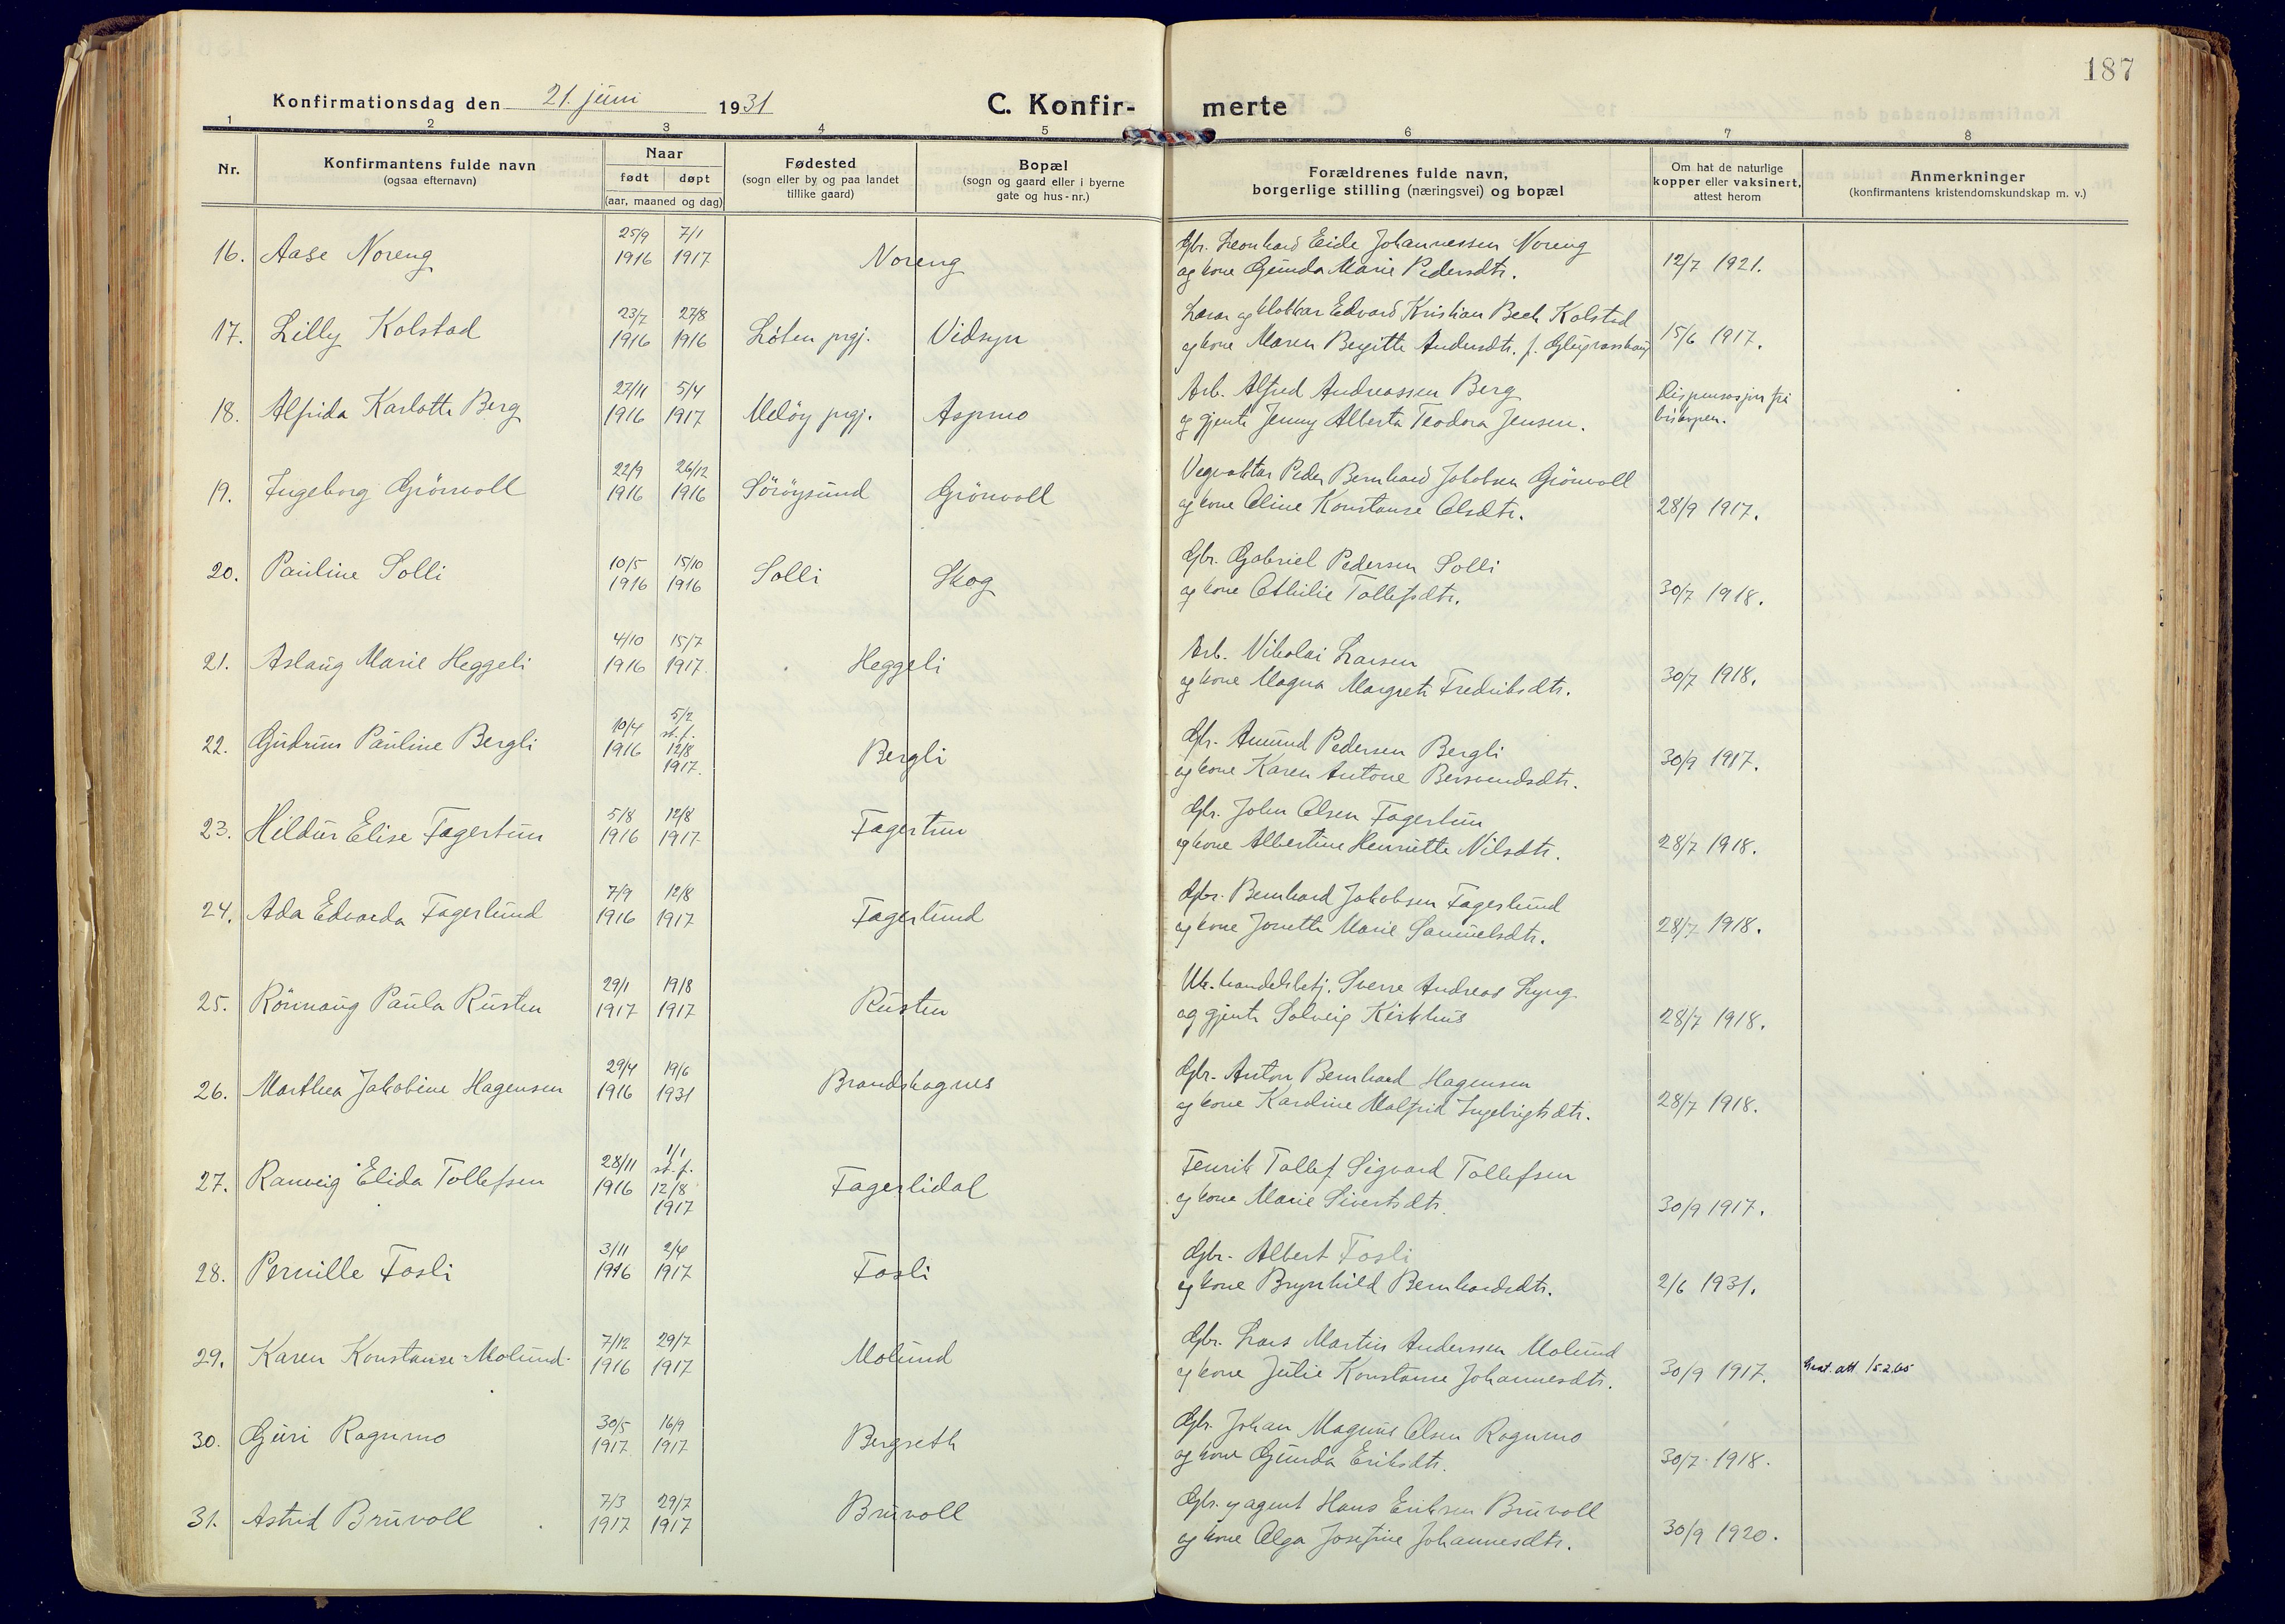 187
Konfirmationsdag den 21. juni 1931 C. Konfir- merte
1 2 3 4 5 6 7 8
Nr.
Konfirmantens fulde navn
(ogsaa efternavn)
Naar
født døpt
(aar, maaned og dag)
Fødested
(sogn eller by og paa landet
tillike gaard)
Bopæl
(sogn og gaard eller i byerne
gate og hus-nr.)
Forældrenes fulde navn,
borgerlige stilling (næringsvei) og bopæl
Om hat de naturlige
kopper eller vaksinert,
attest herom
Anmerkninger
(konfirmantens kristendomskundskap m. v.)
25/9 7/1 Gbr. Leonhard Eide Johannessen Noreng
16. Aase Noreng 1916 1917 Noreng og kone Gunda Marie Pedersdtr. 12/7 1921.
23/7 27/8 Lærar og klokkar Edvard Kristian Bech Kolstad
17. Lilly Kolstad 1916 1916 Løten prgj. Vidsyn og kone Maren Bergitte Andersdtr. f. 15/6 1917.
27/11 5/4 Arb. Alfred Andreassen Berg Dispensasjon frå
18. Alfrida Karlotte Berg 1916 1917 Meløy prgj. Aspmo og gjente Jenny Alberta Teodora Jensen. biskopen.
22/9 26/12 Vegvaktar Peder Bernhard Jakobsen Grönvoll
19. Ingeborg Grönvoll 1916 1916 Söröysund Grönvoll og kone Oline Konstanse Olsdtr. 28/9 1917.
10/5 15/10 Gbr. Gabriel Pedersen Solli
20. Pauline Solli 1916 1916 Solli Skog og kone Othilie Tollefsdtr. 30/7 1918.
4/10 15/7 Arb. Nikolai Larsen
21. Aslaug Marie Heggeli 1916 1917. Heggeli og kone Magna Margrete Fredriksdtr. 30/7 1918.
10/4 5/2 st. f. Gbr. Amund Pedersen Bergli
22. Gudrun Pauline Bergli 1916 12/8 1917. Bergli og kone Karen Antone Bersvendsdtr. 30/9 1917.
5/8 12/8 Gbr. John Olsen Fagertun
23. Hildur Elise Fagertun 1916 1917 Fagertun og kone Albertine Henriette Nilsdtr. 28/7 1918.
7/9 12/8 Gbr. Bernhard Jakobsen Fagerlund
24. Ada Edvarda Fagerlund 1916 1917 Fagerlund og kone Jonette Marie Samuelsdtr. 28/7 1918.
29/1 19/8 Uk. handelsbetj. Sverre Andreas Lyng
25. Rönnaug Paula Rusten 1917 1917 Rusten og gjente Solveig Kirkhus 28/7 1918.
29/4 19/6 Gbr. Anton Bernhard Hagensen
26. Marthea Jakobine Hagensen 1916 1931 Brandskognes og kone Karoline Malfrid Ingebrigtsdtr. 28/7 1918.
28/11 1/1 st. f. Fenrik Tollef Sigvard Tollefsen
27. Ranveig Elida Tollefsen 1916 12/8 1917 Fagerlidal og kone Marie Sivertsdtr. 30/9 1917.
3/11 2/4 Gbr. Albert Fosli
28. Pernille Fosli 1916 1917 Fosli og kone Brynhild Bernhardsdtr. 2/6 1931.
7/12 29/7 Gbr. Lars Martin Anderssen Molund
29. Karen Konstanse Molund 1916 1917 Molund og kone Julie Konstanse Johannesdtr. 30/9 1917. att. 15.2.65
30/5 16/9 Gbr. Johan Magnus Olsen Rognmo
30. Guri Rognmo 1917 1917 Bergseth og kone Gunda Eriksdtr. 30/7 1918.
7/3 29/7 Gbr. og agent Hans Eriksen Bruvoll
31. Astrid Bruvoll 1917 1917 Bruvoll og kone Olga Josefine Johannesdtr. 30/9 1920.